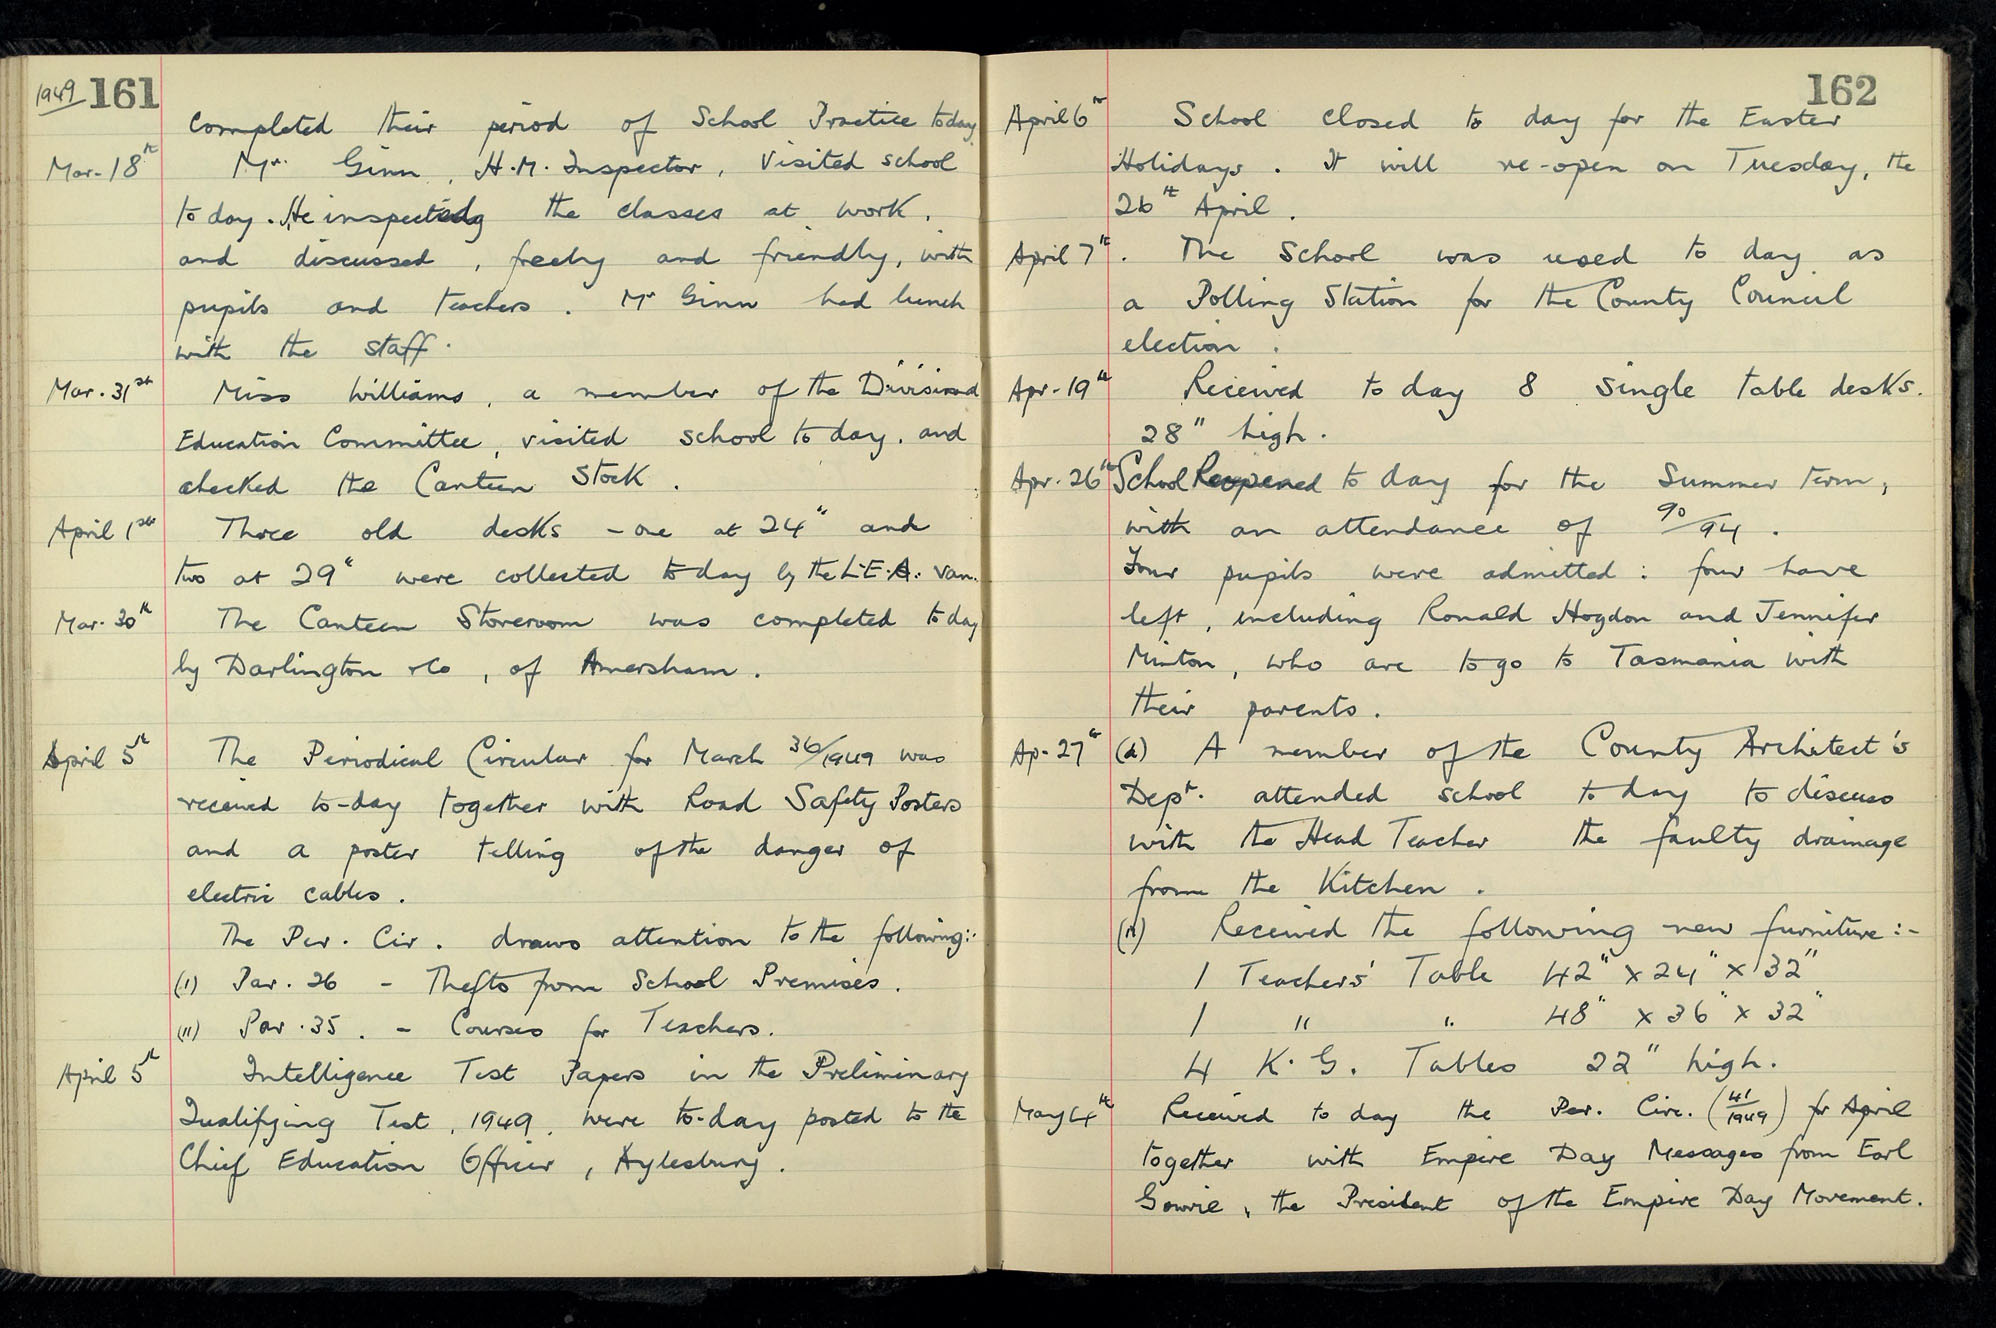 1949 161
completed their period of School Practice today.
Mar. 18th Mr. Ginn, H.M. Inspector, visited school
to day. He inspected the classes at work,
and discussed, freely and friendly, with
pupils and teachers. Mr Ginn had lunch
with the staff.
Mar. 31st Miss Williams, a member of the Divisional
Education Committee, visited school to day, and
checked the Canteen Stock.
April 1st Three old desks – one at 24" and
two at 29" were collected to day by the L.E.A. van.
Mar. 30th The Canteen Storeroom was completed to day
by Darlington & Co, of Amersham.
April 5th The Periodical Circular for March 36/1949 was
received to-day together with Road Safety Posters
and a poster telling of the danger of
electric cables.
The Per. Cir. draws attention to the following:-
(I) Par. 26 - Thefts from School Premises.
(II) Par. 35. - Courses for Teachers.
April 5th Intelligence Test Papers in the Preliminary
Qualifying Test, 1949, were to-day posted to the
Chief Education Officer, Aylesbury.
162
April 6th School closed to day for the Easter
Holidays. It will re-open on Tuesday, the
26th April.
April 7th. The School was used to day as
a Polling Station for the County Council
election.
Apr. 19th Received to day 8 single table desks.
28" high.
Apr. 26th School Reopened to day for the Summer term,
with an attendance of 90/94.
Four pupils were admitted: four have
left, including Ronald Hogdon and Jennifer
Minton, who are to go to Tasmania with
their parents.
Ap. 27th (a) A member of the County Architect's
Dept. attended school to day to discuss
with the Head Teacher the faulty drainage
from the Kitchen.
Received the following new furniture:-
1 Teachers' Table 42" x 24" x 32"
1 " " 48" x 36" x 32"
4 K.G. Tables 22" high.
May 4th Received to day the Per. Circ. (41/1949) for April
together with Empire Day Messages from Earl
Gowrie, the President of the Empire Day Movement.